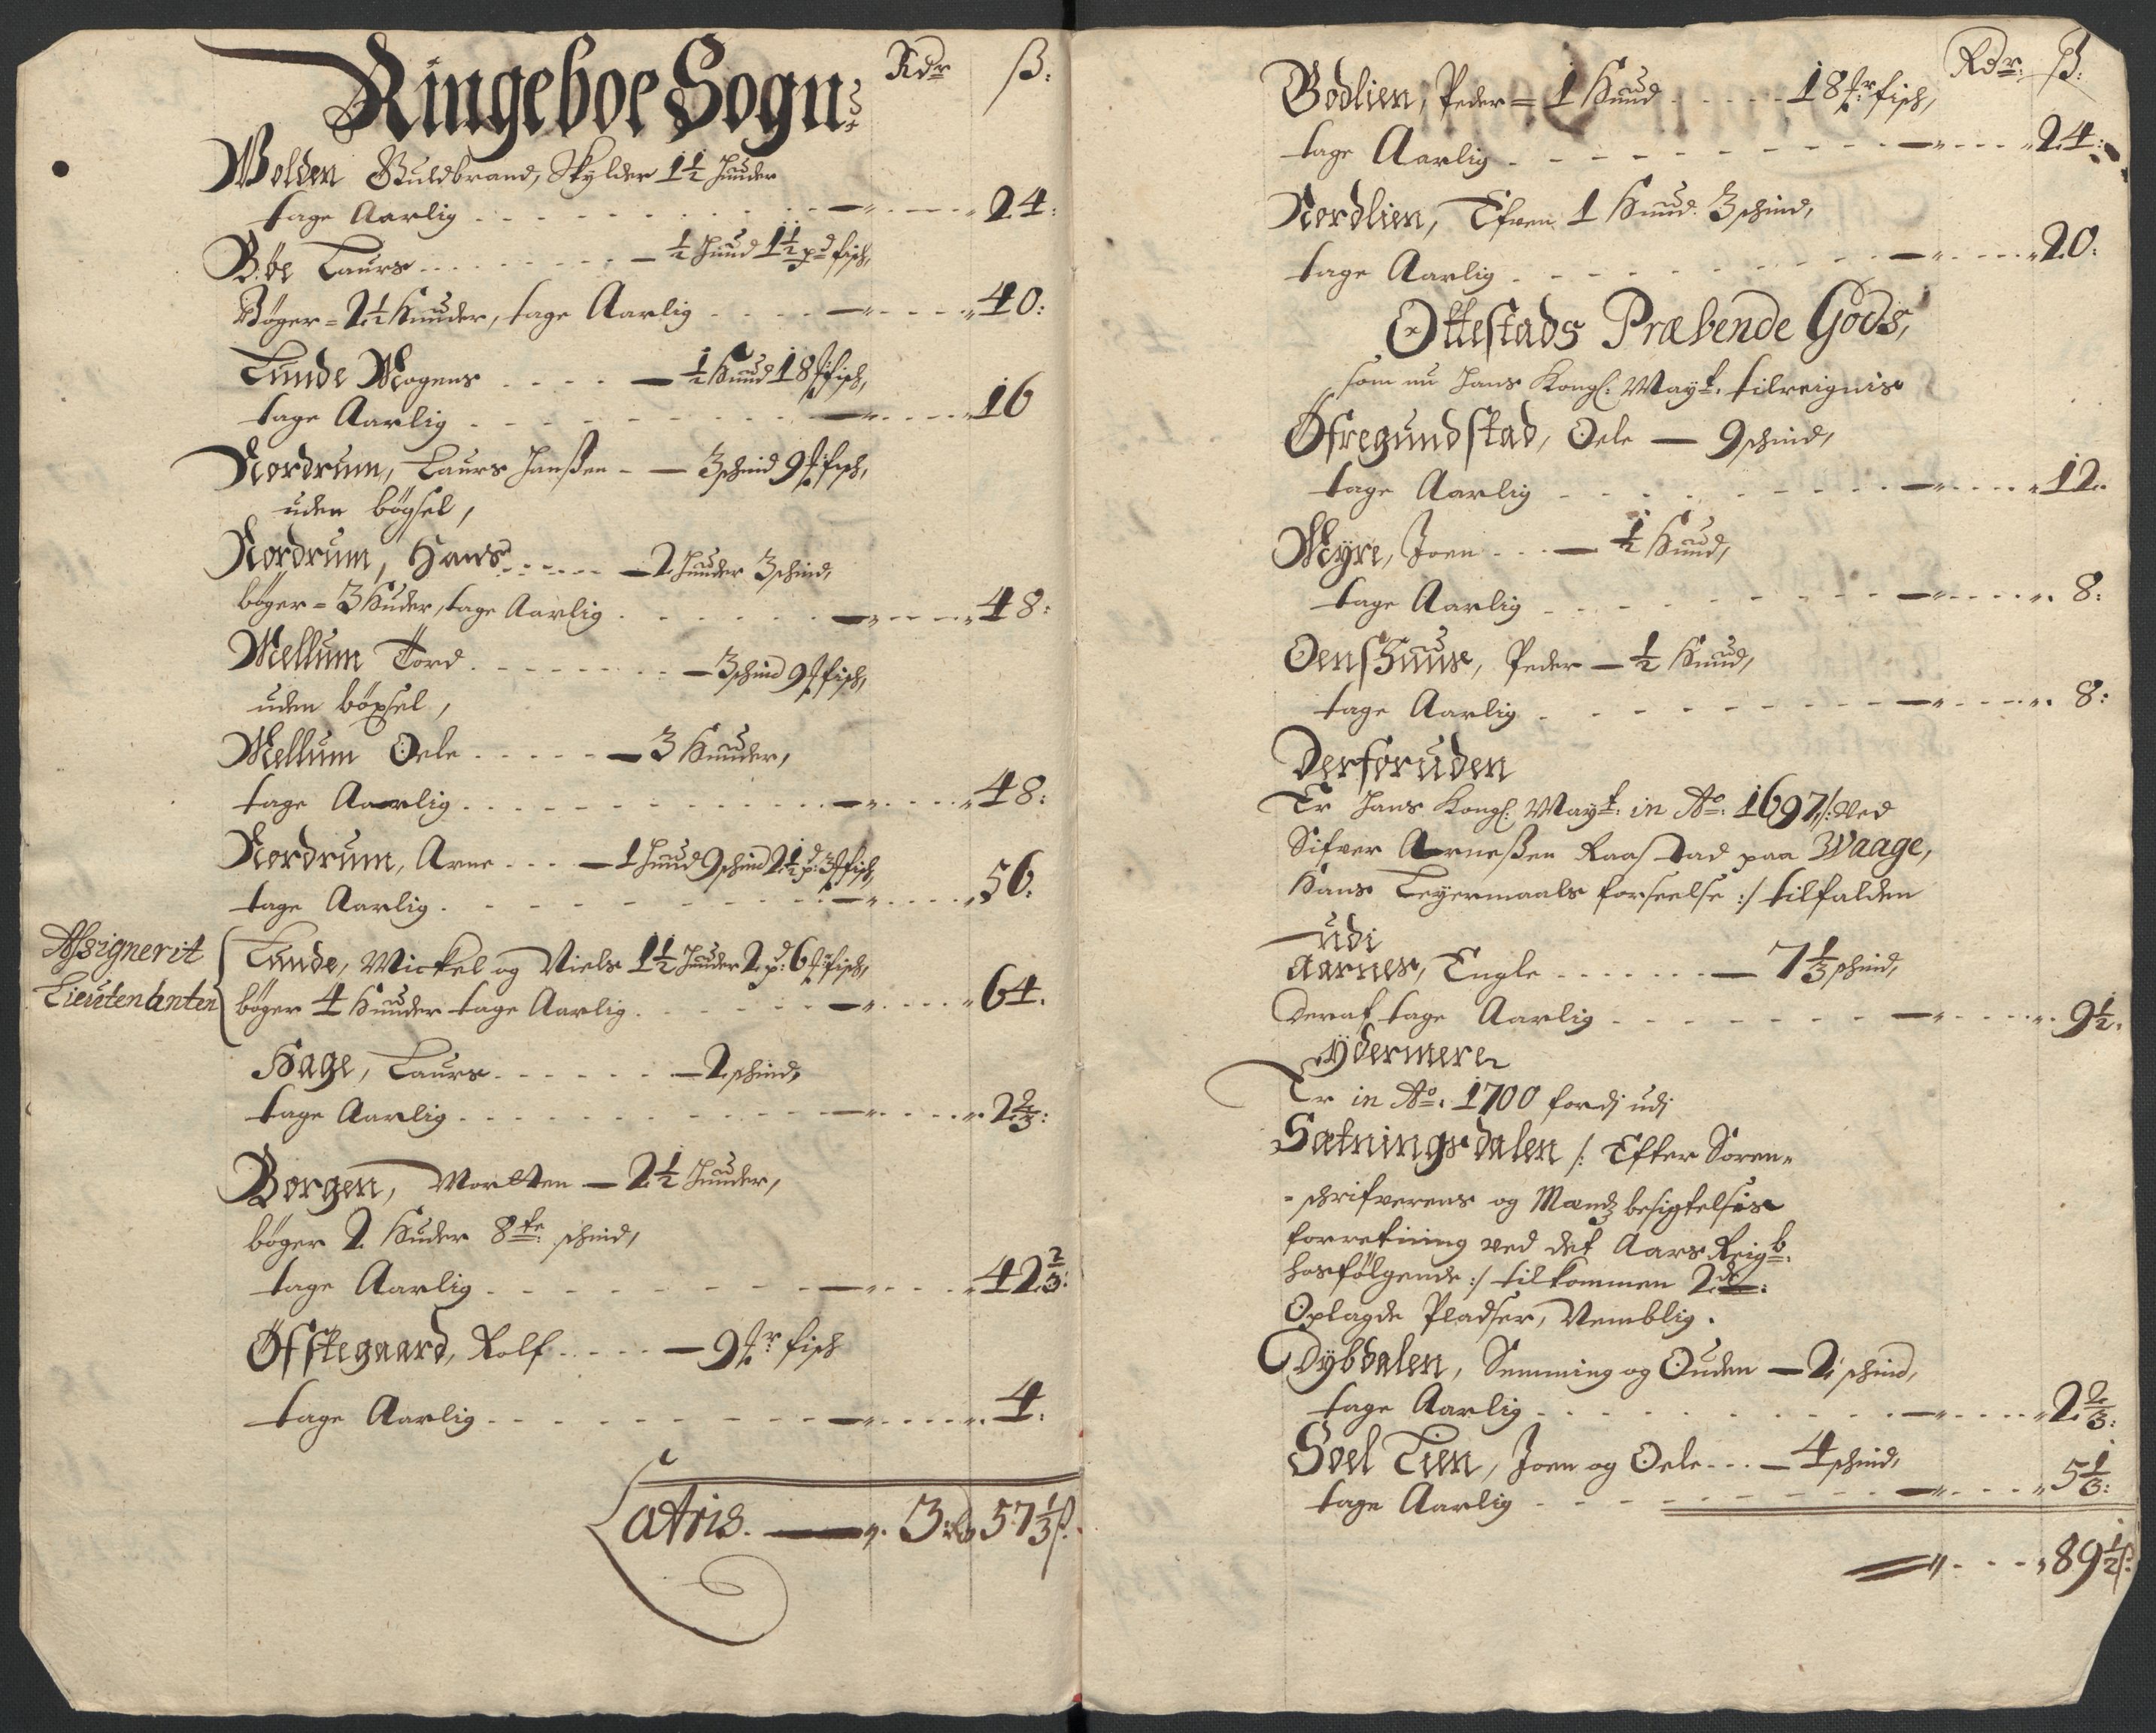 Ringeboe Sogn: Rdr ß:
Wolden Guldbrand, Skylder 1½ Huuder
tage Aarlig - - - 24:
Bøe Laurs - - - ½ Huud 1½ pd fisch,
Bøger = 2½ Huuder, tage Aarlig - - - 40:
Lunde Mogens - - - ½ Huud 18 fisch,
tage Aarlig - - - 16
Nordrum, Laurs Hanßen - - 3 schind 9 fisch,
uden bøgsel,
Nordrum, Hans - - - 2 Huuder 3 schind,
bøger = 3 Huder, tage Aarlig - - - 48:
Mellum Tord - - - 3 schind 9 fisch,
uden bøxsel,
Mellum Oele - - - 3 Huuder,
tage Aarlig - - - 48:
Nordrum, Arne - - - 1 Huud 9 schind 2½ pd: 3 fisch,
tage Aarlig - - - 56:
Assignerit Lieutenanten
Lunde, Mickel og Niels 1½ Huuder 2 pd: 6 fisch,
bøger 4 Huuder tage Aarlig - - - 64.
Hage, Laurs - - - 2 schind,
tage Aarlig - - - 2⅔:
Borgen, Morten — 2½ Huuder,
bøger 2 Huder 8te schind,
tage Aarlig - - - 42⅔:
Øfstegaard, Rolf - - - 9 fisch
tage Aarlig - - - 4.
Latris. — 3 rdr 57⅓ ß.
Rdr: ß:
Bodlien, Peder = 1 Huud - - - 18 fisch,
tage Aarlig - - - 24:
Nordlien, Efven 1 Huud 3 schind,
tage Aarlig - - - 20:
Ottestads Præbende Gods,
som nu Hans Kongl: Mayt. tilreignis
Øfregundstad, Oele — 9 schind,
tage Aarlig - - - 12.
Myre, Joen - - - ½ Huud,
tage Aarlig - - - 8:
Oenshuus, Peder — ½ Huud,
tage Aarlig - - - 8:
Derforuden
Er Hans Kongl: Mayt: in Ao: 1697 /: Ved
Sifver Arneßen Raastad paa Waage,
Hans Leyermaals forseelse :/ tilfalden
udi
Aarnes, Engle - - - 7⅓ schind,
Deraf tage Aarlig - - - 9½.
Ydermere
Er in Ao. 1700 fordj udj
Sætningsdalen /: Efter Soren-
- schrifverens og Mændz besigtelsis
forretning ved det Aars Reigb:
hosfølgende :/ tilkommen 2de:
Oplagde Pladser, Nemblig.
Dybdalen, Semming og Ouden — 2 schind,
tage Aarlig - - - 2⅔:
Soel Lien, Joen og Oele - - - 4 schind,
tage Aarlig - - - 5⅓:
- - - 89½ ß.